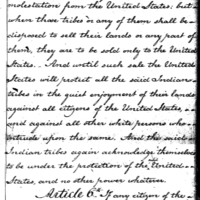 molestation from the United States; but
when those tribes or any of them shall be
disposed to sell their lands or any part of
them, they are to be sold only to the United
States. And until such sale the United
States will protect all the said Indian
tribes in the quiet enjoyment of their lands
against all citizens of the United States,
and against all other white persons who
intrude upon the same. And the said
Indian tribes again acknowledge themselves
to be under the protection of the United
States, and no other power whatever.
Article 6th If any citizen of the